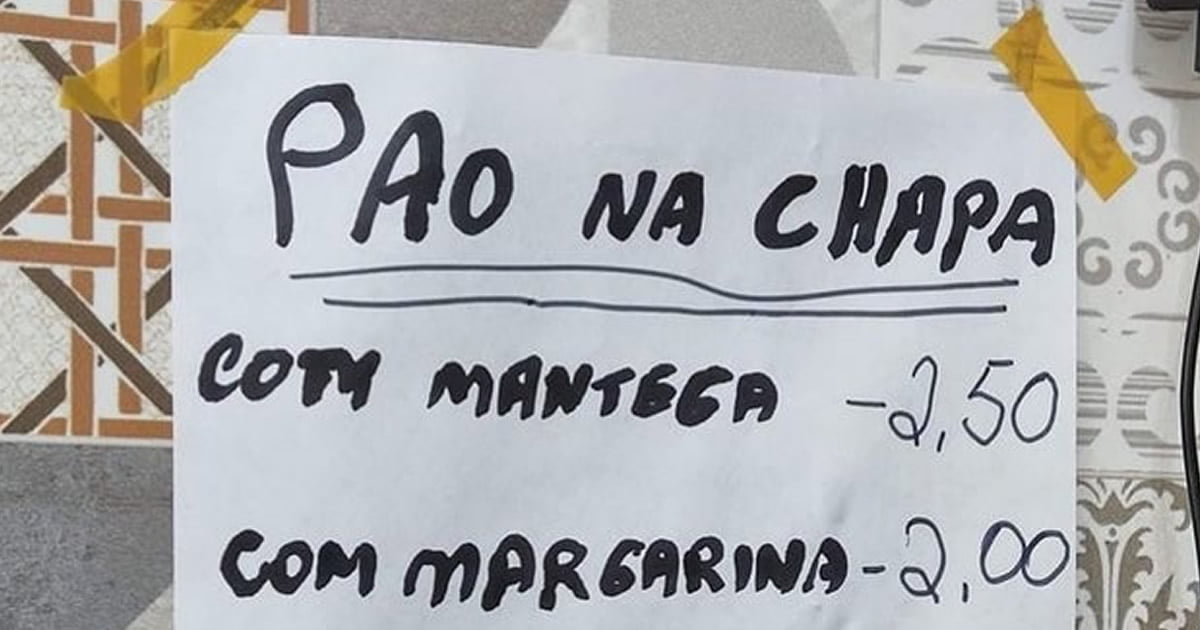 PAO NA CHAPA
COM MANTEGA -2,50
COM MARGARINA -2,00